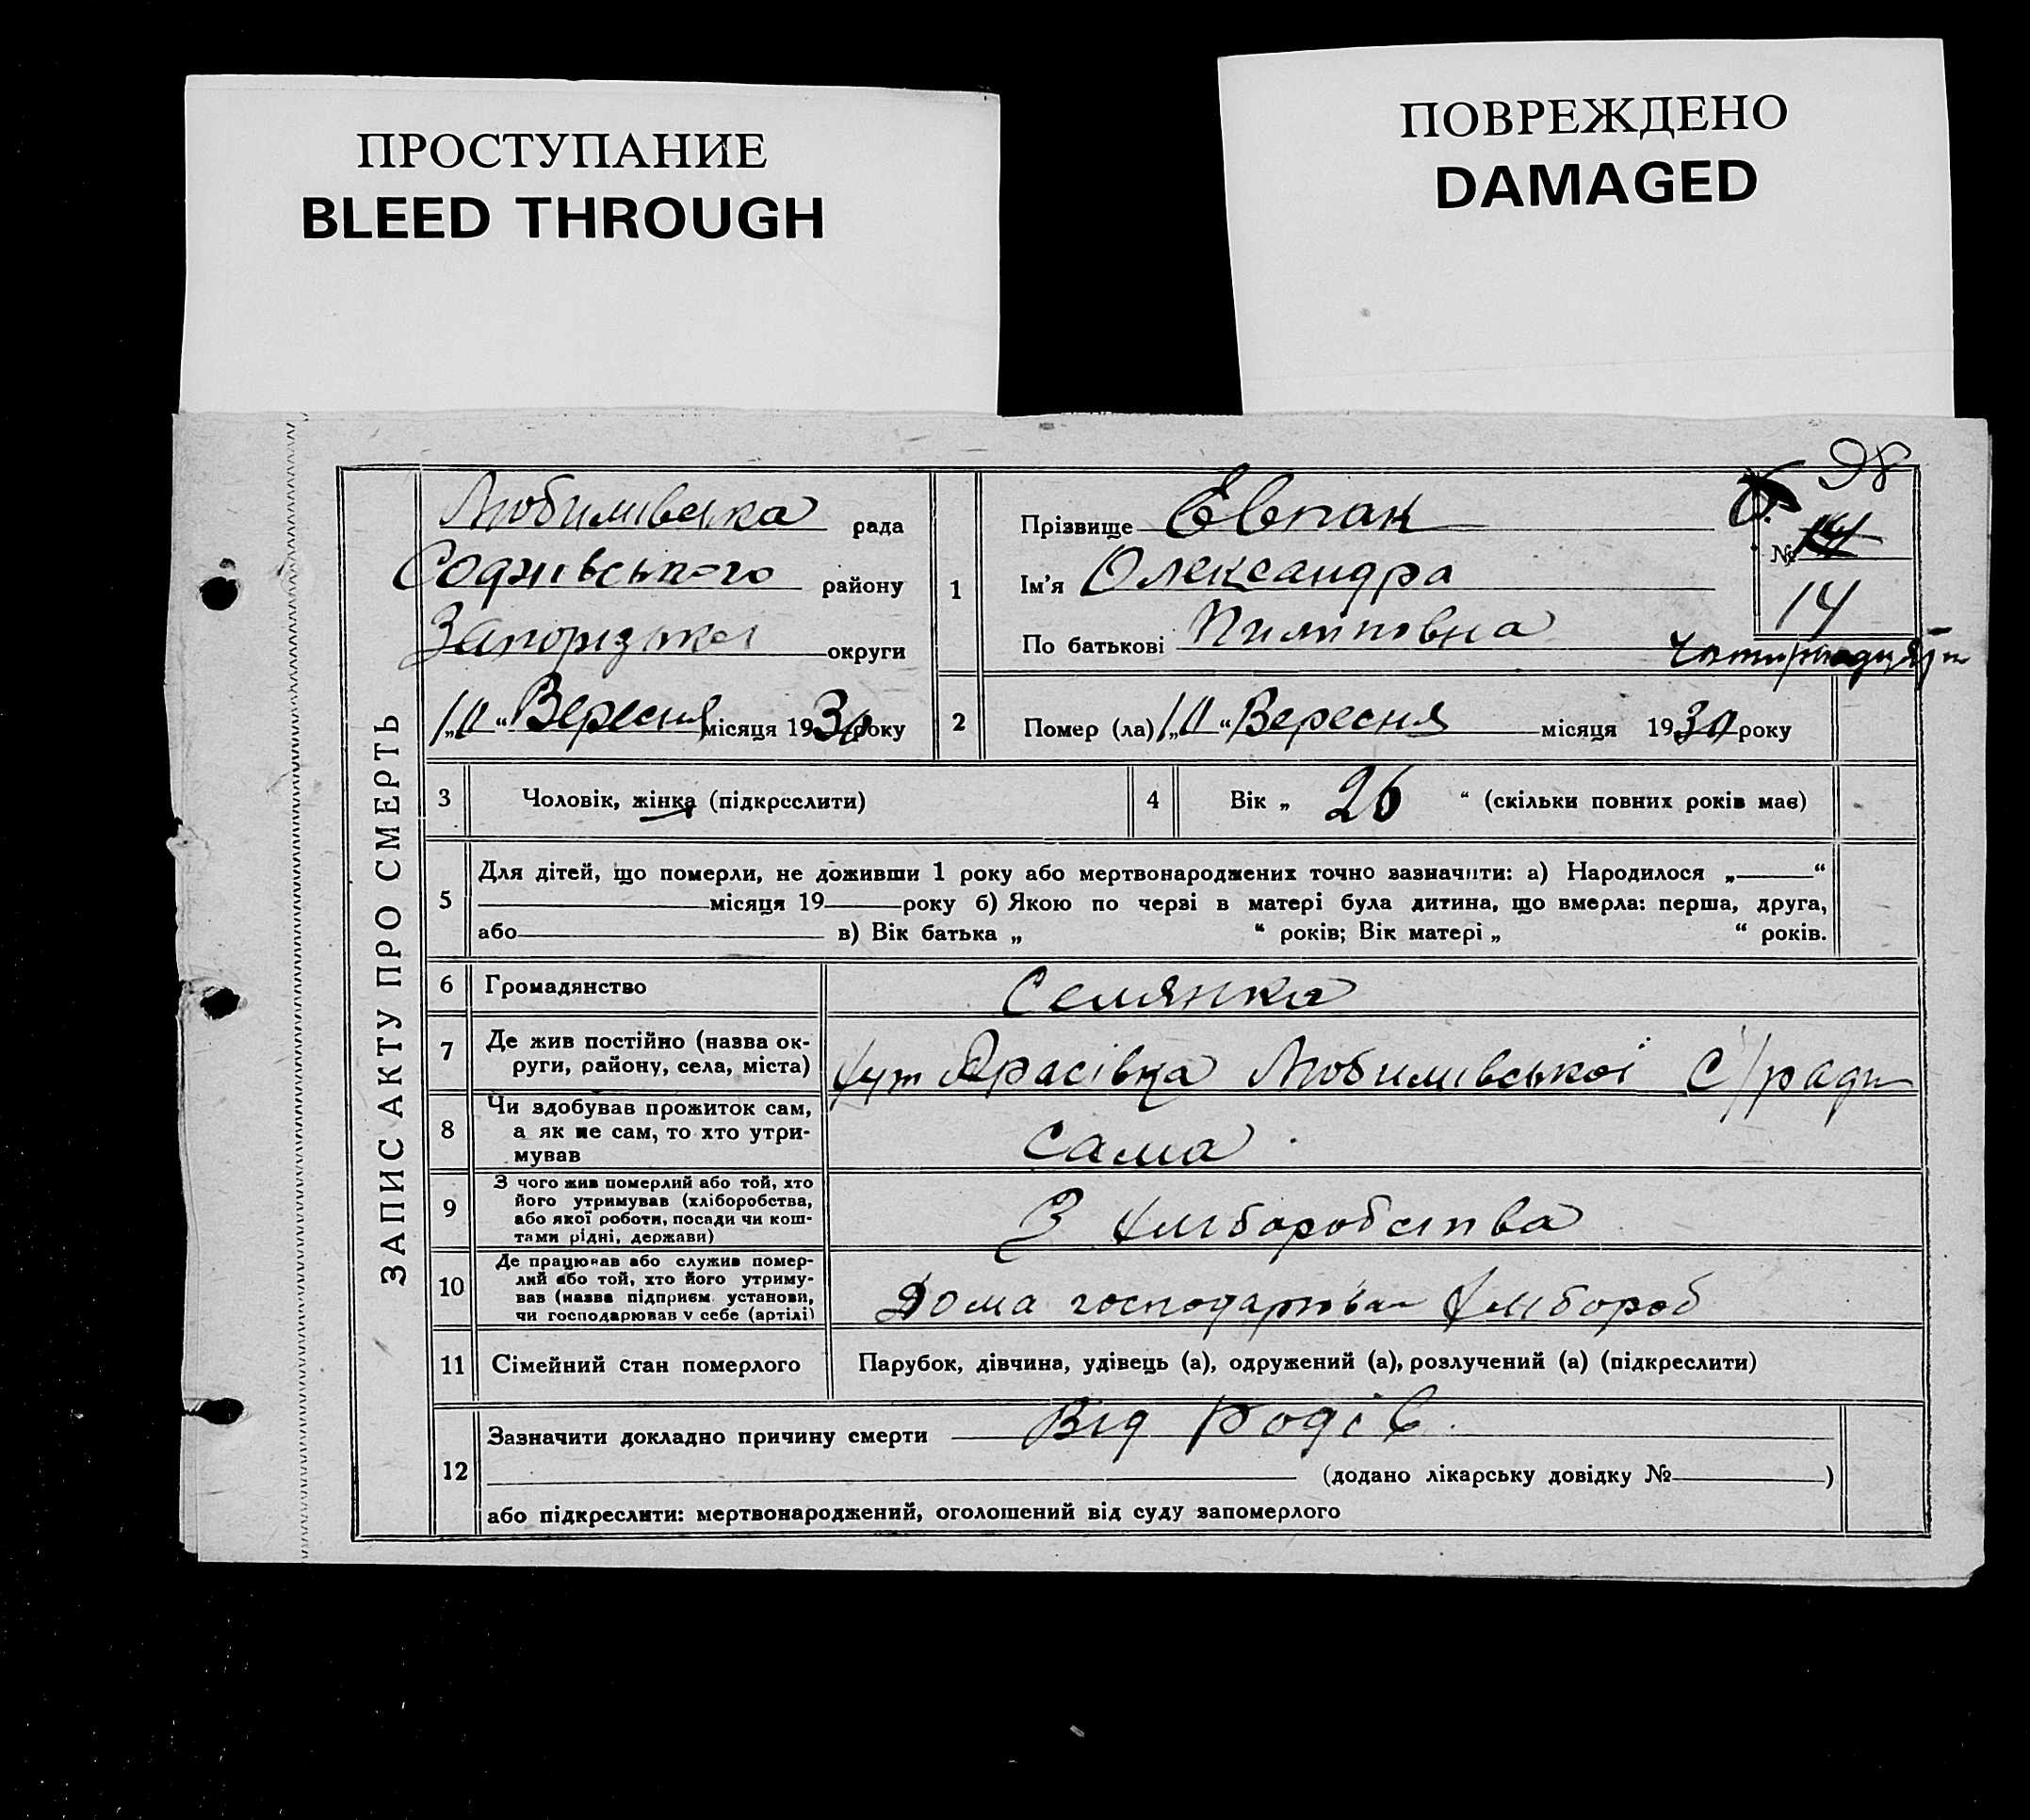 ПРОСТУПАНИЕ
BLEED THROUGH
ПОВРЕЖДЕНО
DAMAGED
98
ЗАПИС АКТУ ПРО СМЕРТЬ
Любимівська рада
району
Запорізької округи
"10" Вересня місяця 1930 року
1
Прізвище Евпак
Ім'я Олександра
По батькові Пилиповна
№ 14
14
2
Помер (ла) "10" Вересня місяця 1930 року
3
Чоловік, жінка (підкреслити)
4
Вік „ 26 “ (скільки повних років має)
5
Для дітей, що померли, не доживши 1 року або мертвонароджених точно зазначити: а) Народилося „——“
місяця 19 року б) Якою по черзі в матері була дитина, що вмерла: перша, друга,
або в) Вік батька „ “ років; Вік матері „ “ років.
6
Громадянство
Селянка
7
Де жив постійно (назва ок-
руги, району, села, міста)
хут Любимівської С/ради
8
Чи здобував прожиток сам,
а як не сам, то хто утри-
мував
Сама
9
З чого жив померлий або той, хто
його утримував (хліборобства,
або якої роботи, посади чи кош-
тами рідні, держави)
З хліборобства
10
Де працював або служив помер-
лий або той, хто його утриму-
вав (назва підприєм. установи,
чи господарював у себе (артілі)
Дома хлібороб
11
Сімейний стан померлого
Парубок, дівчина, удівець (а), одружений (а), розлучений (а) (підкреслити)
12
Зазначити докладно причину смерти Від родів.
(додано лікарську довідку № )
або підкреслити: мертвонароджений, оголошений від суду запомерлого